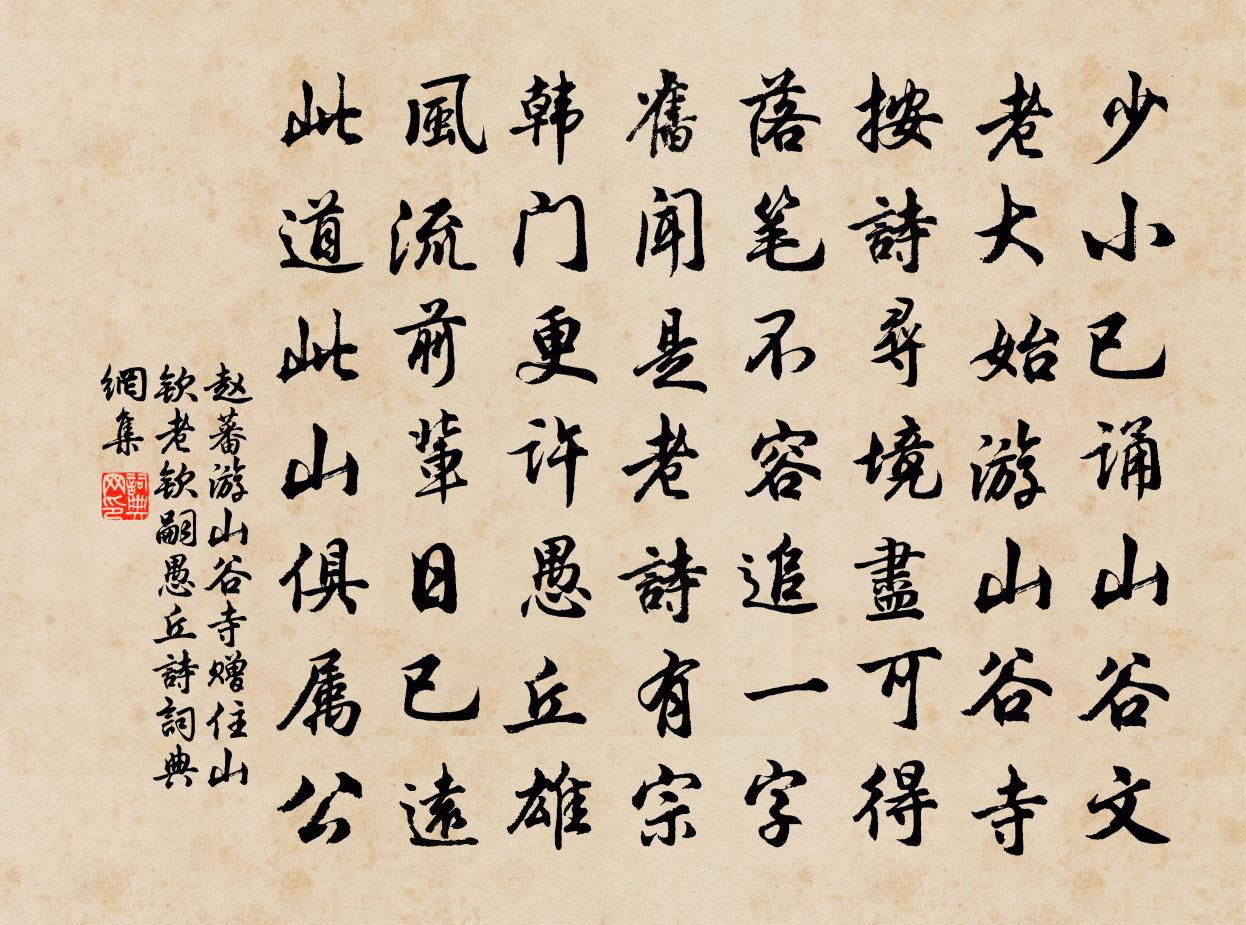 少小已诵山谷文
老大始游山谷寺
按詩尋境盡可得
落笔不容追一字
舊闻是老詩有宗
韩门更许愚丘雄
風流前輩日已遠
此道此山俱属公
赵蕃游山谷寺赠住山
钦老钦嗣愚丘詩詞典
網集
詞典
网印